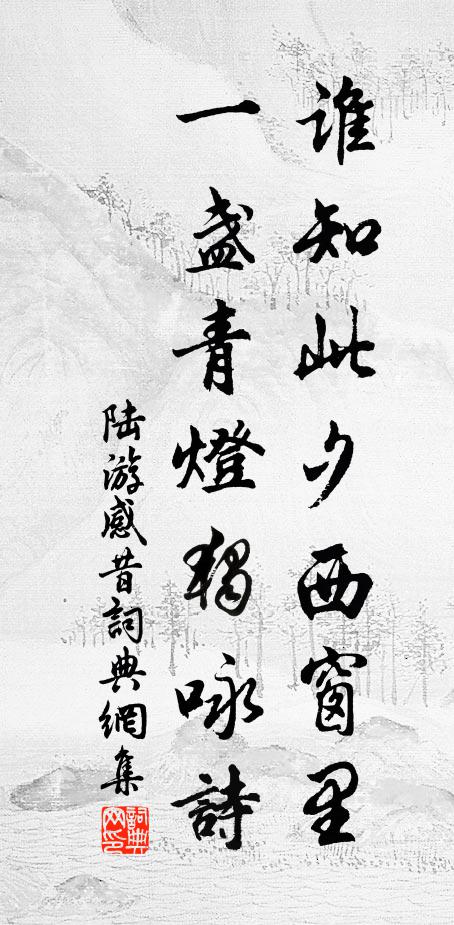 誰知此夕西窗里
一盏青燈獨咏詩
陆游感昔詞典網集
詞典網印